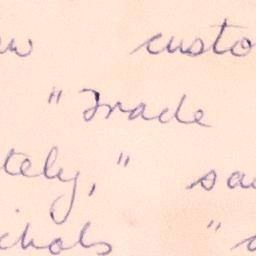 w custo
" Trade
tely, " sa
ichols "